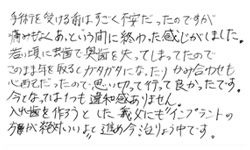 手術を受ける前はすごく不安だったのですが
痛みもなくあっという間に終わった感じがしました。
若い頃に虫歯で奥歯を失ってしまってたので
このまま年を取るとガタガタになったりかみ合わせも
心配だったので、思い切って行って良かったです。
今となってはもう違和感ありません。
入れ歯を作ろうとした義父にもインプラントの
方が絶対いいよと進め今治りょう中です。